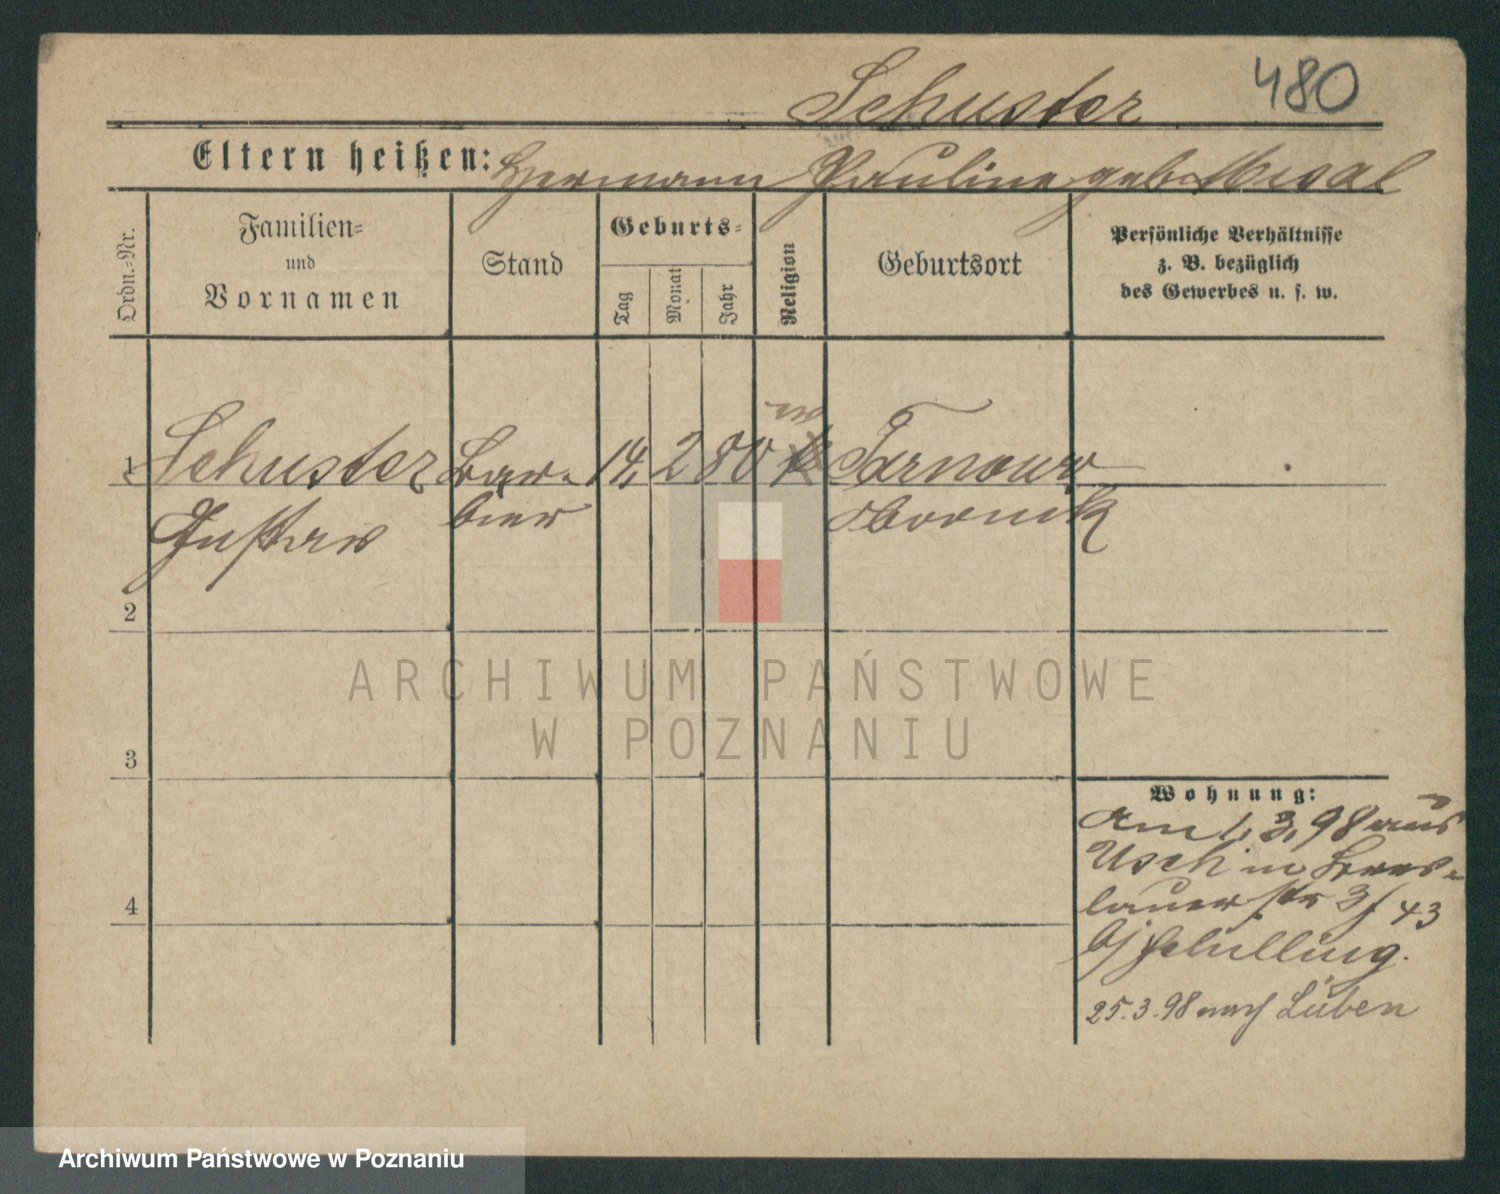 Schuster 480
Eltern heißen: Hermann Pauline geb.
Ordn.-Nr.
Familien-
und
Vornamen
Stand
Geburts-
Tag
Monat
Jahr
Religion
Geburtsort
Persönliche Verhältnisse
z. B. bezüglich
des Gewerbes u. s. w.
1 Schuster Bar- 14. 2 80 Tarnowo
Gustav bier Obornik
2
3
4
ARCHIWUM PAŃSTWOWE
W POZNANIU
Wohnung:
Am 1. 3. 98 aus
Usch in Bres-
lauerstr 3/43
b/ Schilling.
25.3.98 nach Lüben
Archiwum Państwowe w Poznaniu